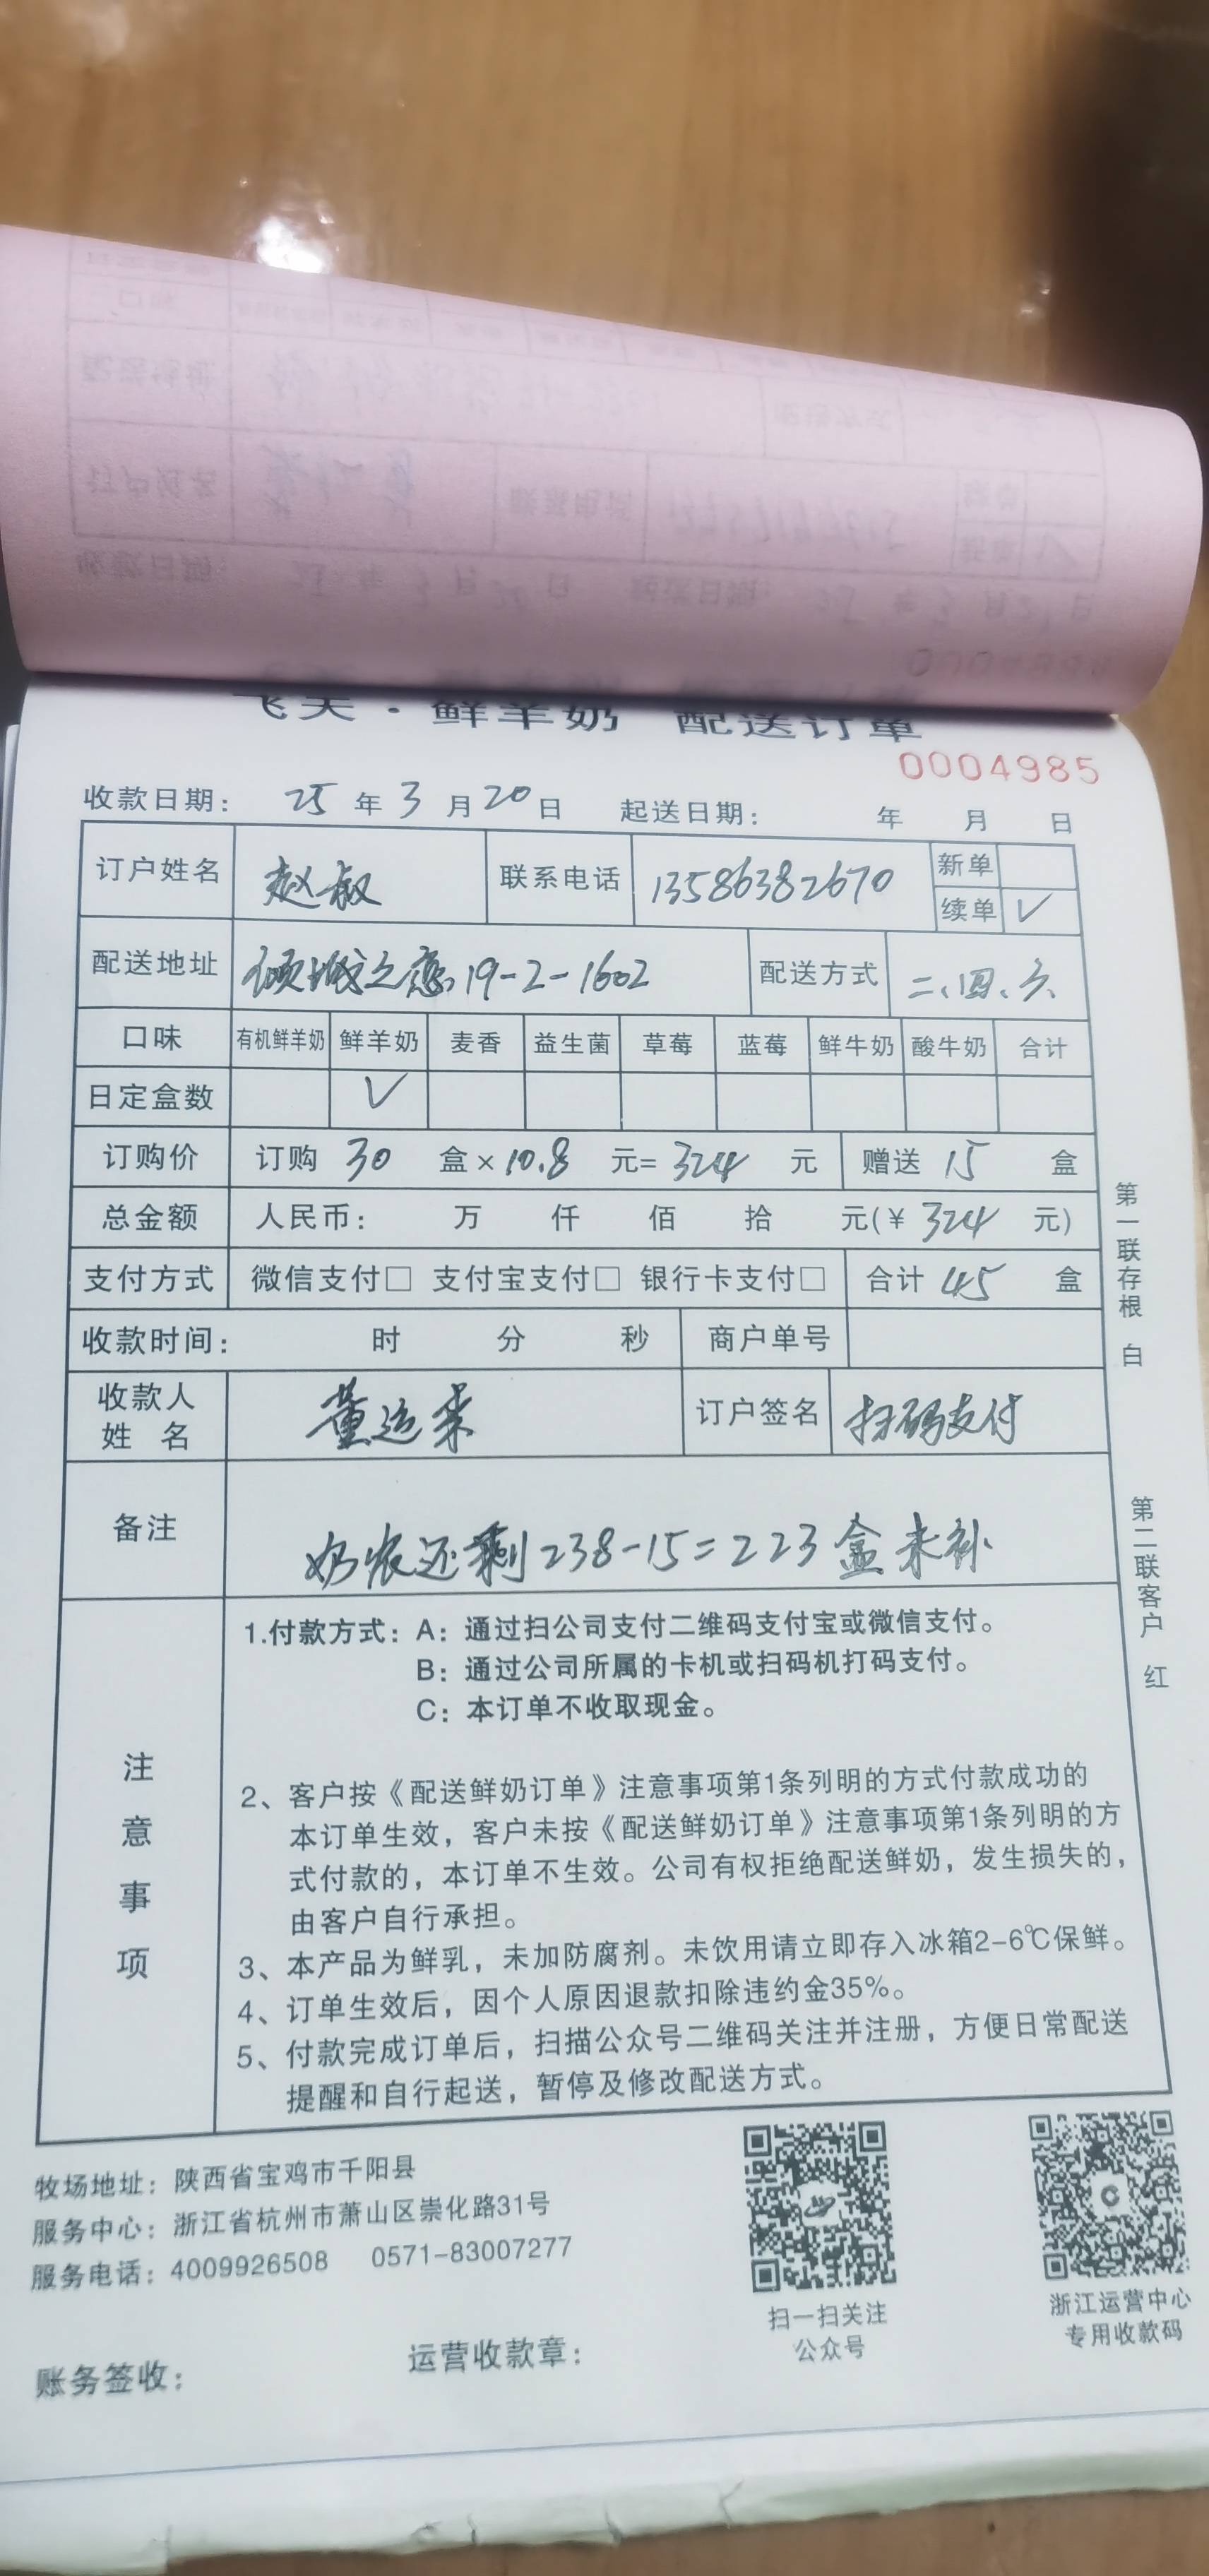 飞天·鲜羊奶 配送订单
0004985
收款日期: 25 年 3 月 20 日 起送日期: 年 月 日
订户姓名 赵叔 联系电话 13586382670 新单
续单 ✓
配送地址 倾城之恋 19-2-1602 配送方式 二、四、六
口味 有机鲜羊奶 鲜羊奶 麦香 益生菌 草莓 蓝莓 鲜牛奶 酸牛奶 合计
日定盒数 ✓
订购价 订购 30 盒×10.8 元=324 元 赠送 15 盒
总金额 人民币: 万 仟 佰 拾 元(¥ 324 元)
支付方式 微信支付□ 支付宝支付□ 银行卡支付□ 合计 45 盒
收款时间: 时 分 秒 商户单号
收款人
姓 名 董运采 订户签名 扫码支付
备注 奶农还剩238-15=223盒未补
第一联存根 白
第二联客户 红
注意事项
1.付款方式: A: 通过扫公司支付二维码支付宝或微信支付。
B: 通过公司所属的卡机或扫码机打码支付。
C: 本订单不收取现金。
2、客户按《配送鲜奶订单》注意事项第1条列明的方式付款成功的
本订单生效，客户未按《配送鲜奶订单》注意事项第1条列明的方
式付款的，本订单不生效。公司有权拒绝配送鲜奶，发生损失的，
由客户自行承担。
3、本产品为鲜乳，未加防腐剂。未饮用请立即存入冰箱2-6℃保鲜。
4、订单生效后，因个人原因退款扣除违约金35%。
5、付款完成订单后，扫描公众号二维码关注并注册，方便日常配送
提醒和自行起送，暂停及修改配送方式。
牧场地址: 陕西省宝鸡市千阳县
服务中心: 浙江省杭州市萧山区崇化路31号
服务电话: 4009926508 0571-83007277
扫一扫关注
公众号
浙江运营中心
专用收款码
账务签收: 运营收款章: